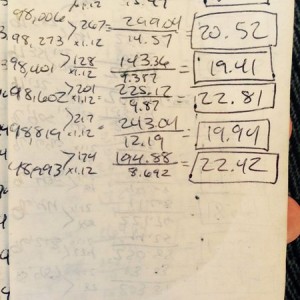 98,006 >267 x1.12 = 299.04 / 14.57 = 20.52
98,273
98,401 >128 x1.12 143.36 / 7.387 = 19.41
98,602 >201 x1.12 225.12 / 9.87 = 22.81
98,819 >217 x1.12 243.04 / 12.19 = 19.94
98,993 >174 x1.12 194.88 / 8.692 = 22.42